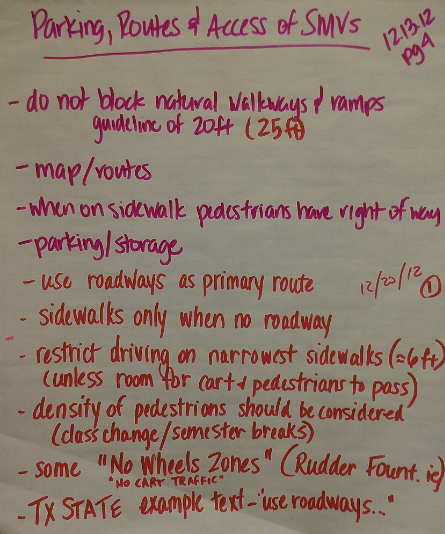 Parking, Routes & Access of SMVs
12.13.12
pg 4
- do not block natural walkways & ramps
guideline of 20ft (25ft)
- map/routes
- when on sidewalk pedestrians have right of way
- parking/storage
- use roadways as primary route
12/20/12 ①
- sidewalks only when no roadway
- restrict driving on narrowest sidewalks (≈6ft)
(unless room for cart & pedestrians to pass)
- density of pedestrians should be considered
(class change/semester breaks)
- some "No Wheels Zones" (Rudder Fount. ie)
"NO CART TRAFFIC"
- TX STATE example text - "use roadways..."